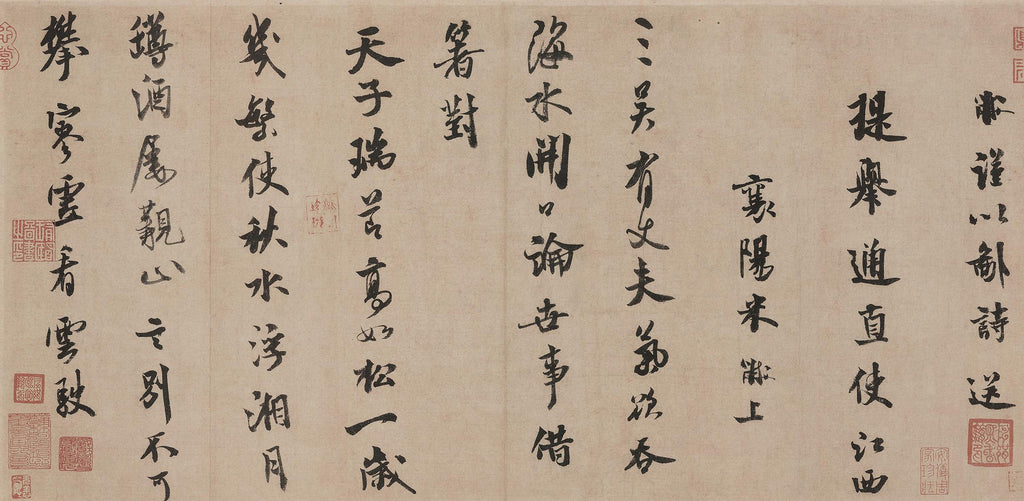 黻謹以鄙詩送
提舉通直使江西
襄陽米黻上
三吳有丈夫氣欲吞
海水開口論世事借
箸對
天子瑞節高如松一歲
幾繁使秋水浮湘月
罇酒屢觀山言別不可
攀寥雲看雲駛